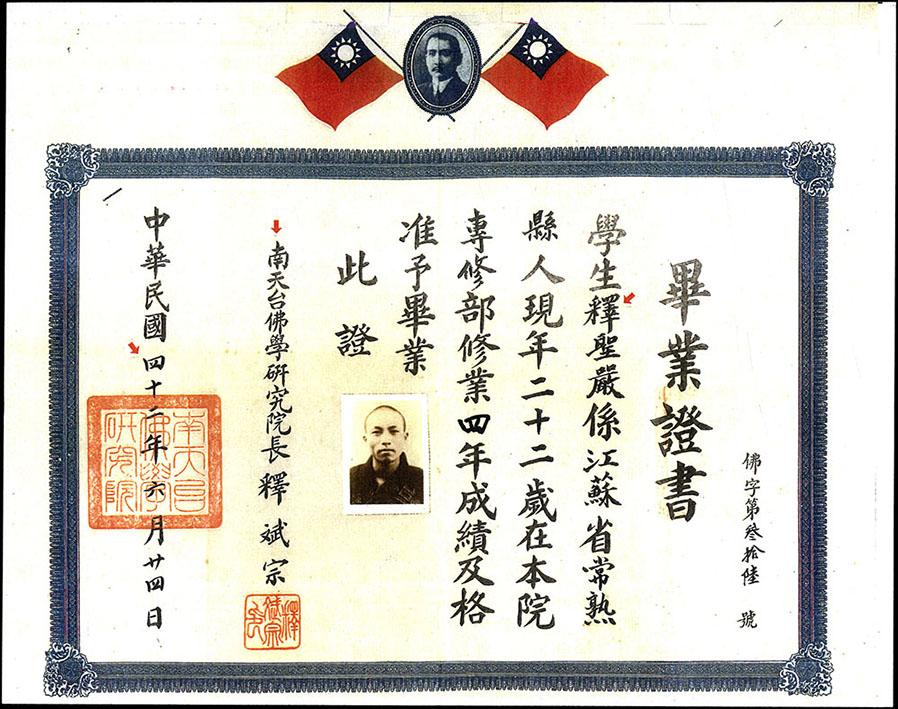 佛字第叁拾陸號
畢業證書
學生釋聖嚴係江蘇省常熟
縣人現年二十二歲在本院
專修部修業四年成績及格
准予畢業
此證
南天台佛學研究院長釋斌宗
中華民國四十二年六月廿四日
南天台
佛學
研究院